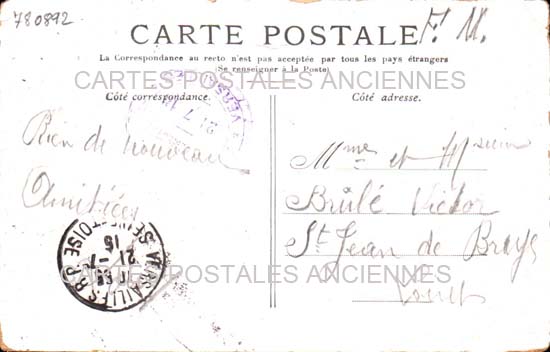 780892
F. M.
CARTE POSTALE
La Correspondance au recto n'est pas acceptée par tous les pays étrangers
(Se renseigner à la Poste)
CARTES POSTALES ANCIENNES
Côté correspondance.
Côté adresse.
Rien de nouveau
Amitiées
Mme et
Brûlé Victor
St Jean de Braye
Loiret
VERSAILLES R.P.
21 -7
15
SEINE-ET-OISE
CARTES POSTALES ANCIENNES